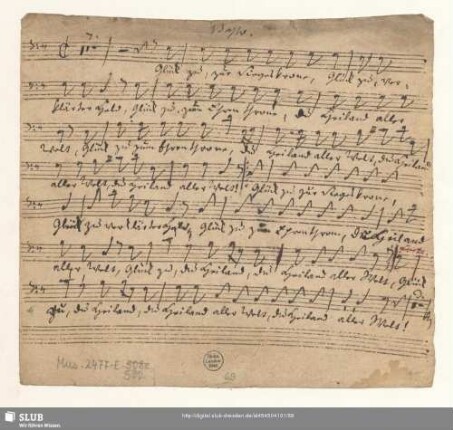 Basso.
Glük zu, zur Siegeskrone, Glük zu, ver,
klärter Held, Glük zu, zum Ehrenthrone, du Heiland aller
Welt, Glük zu zum Ehrenthrone, du Heiland aller Welt, du Heiland
aller Welt, du Heiland aller Welt! Glük zu zur Siegeskrone,
Glük zu verklärter Held, Glük zu zum Ehrenthrone, du Heiland
aller Welt, Glük zu, du Heiland, du Heiland aller Welt, Glük
zu, du Heiland, du Heiland aller Welt, du Heiland aller Welt!
Mus. 2477-E-
SLUB
Wir führen Wissen.